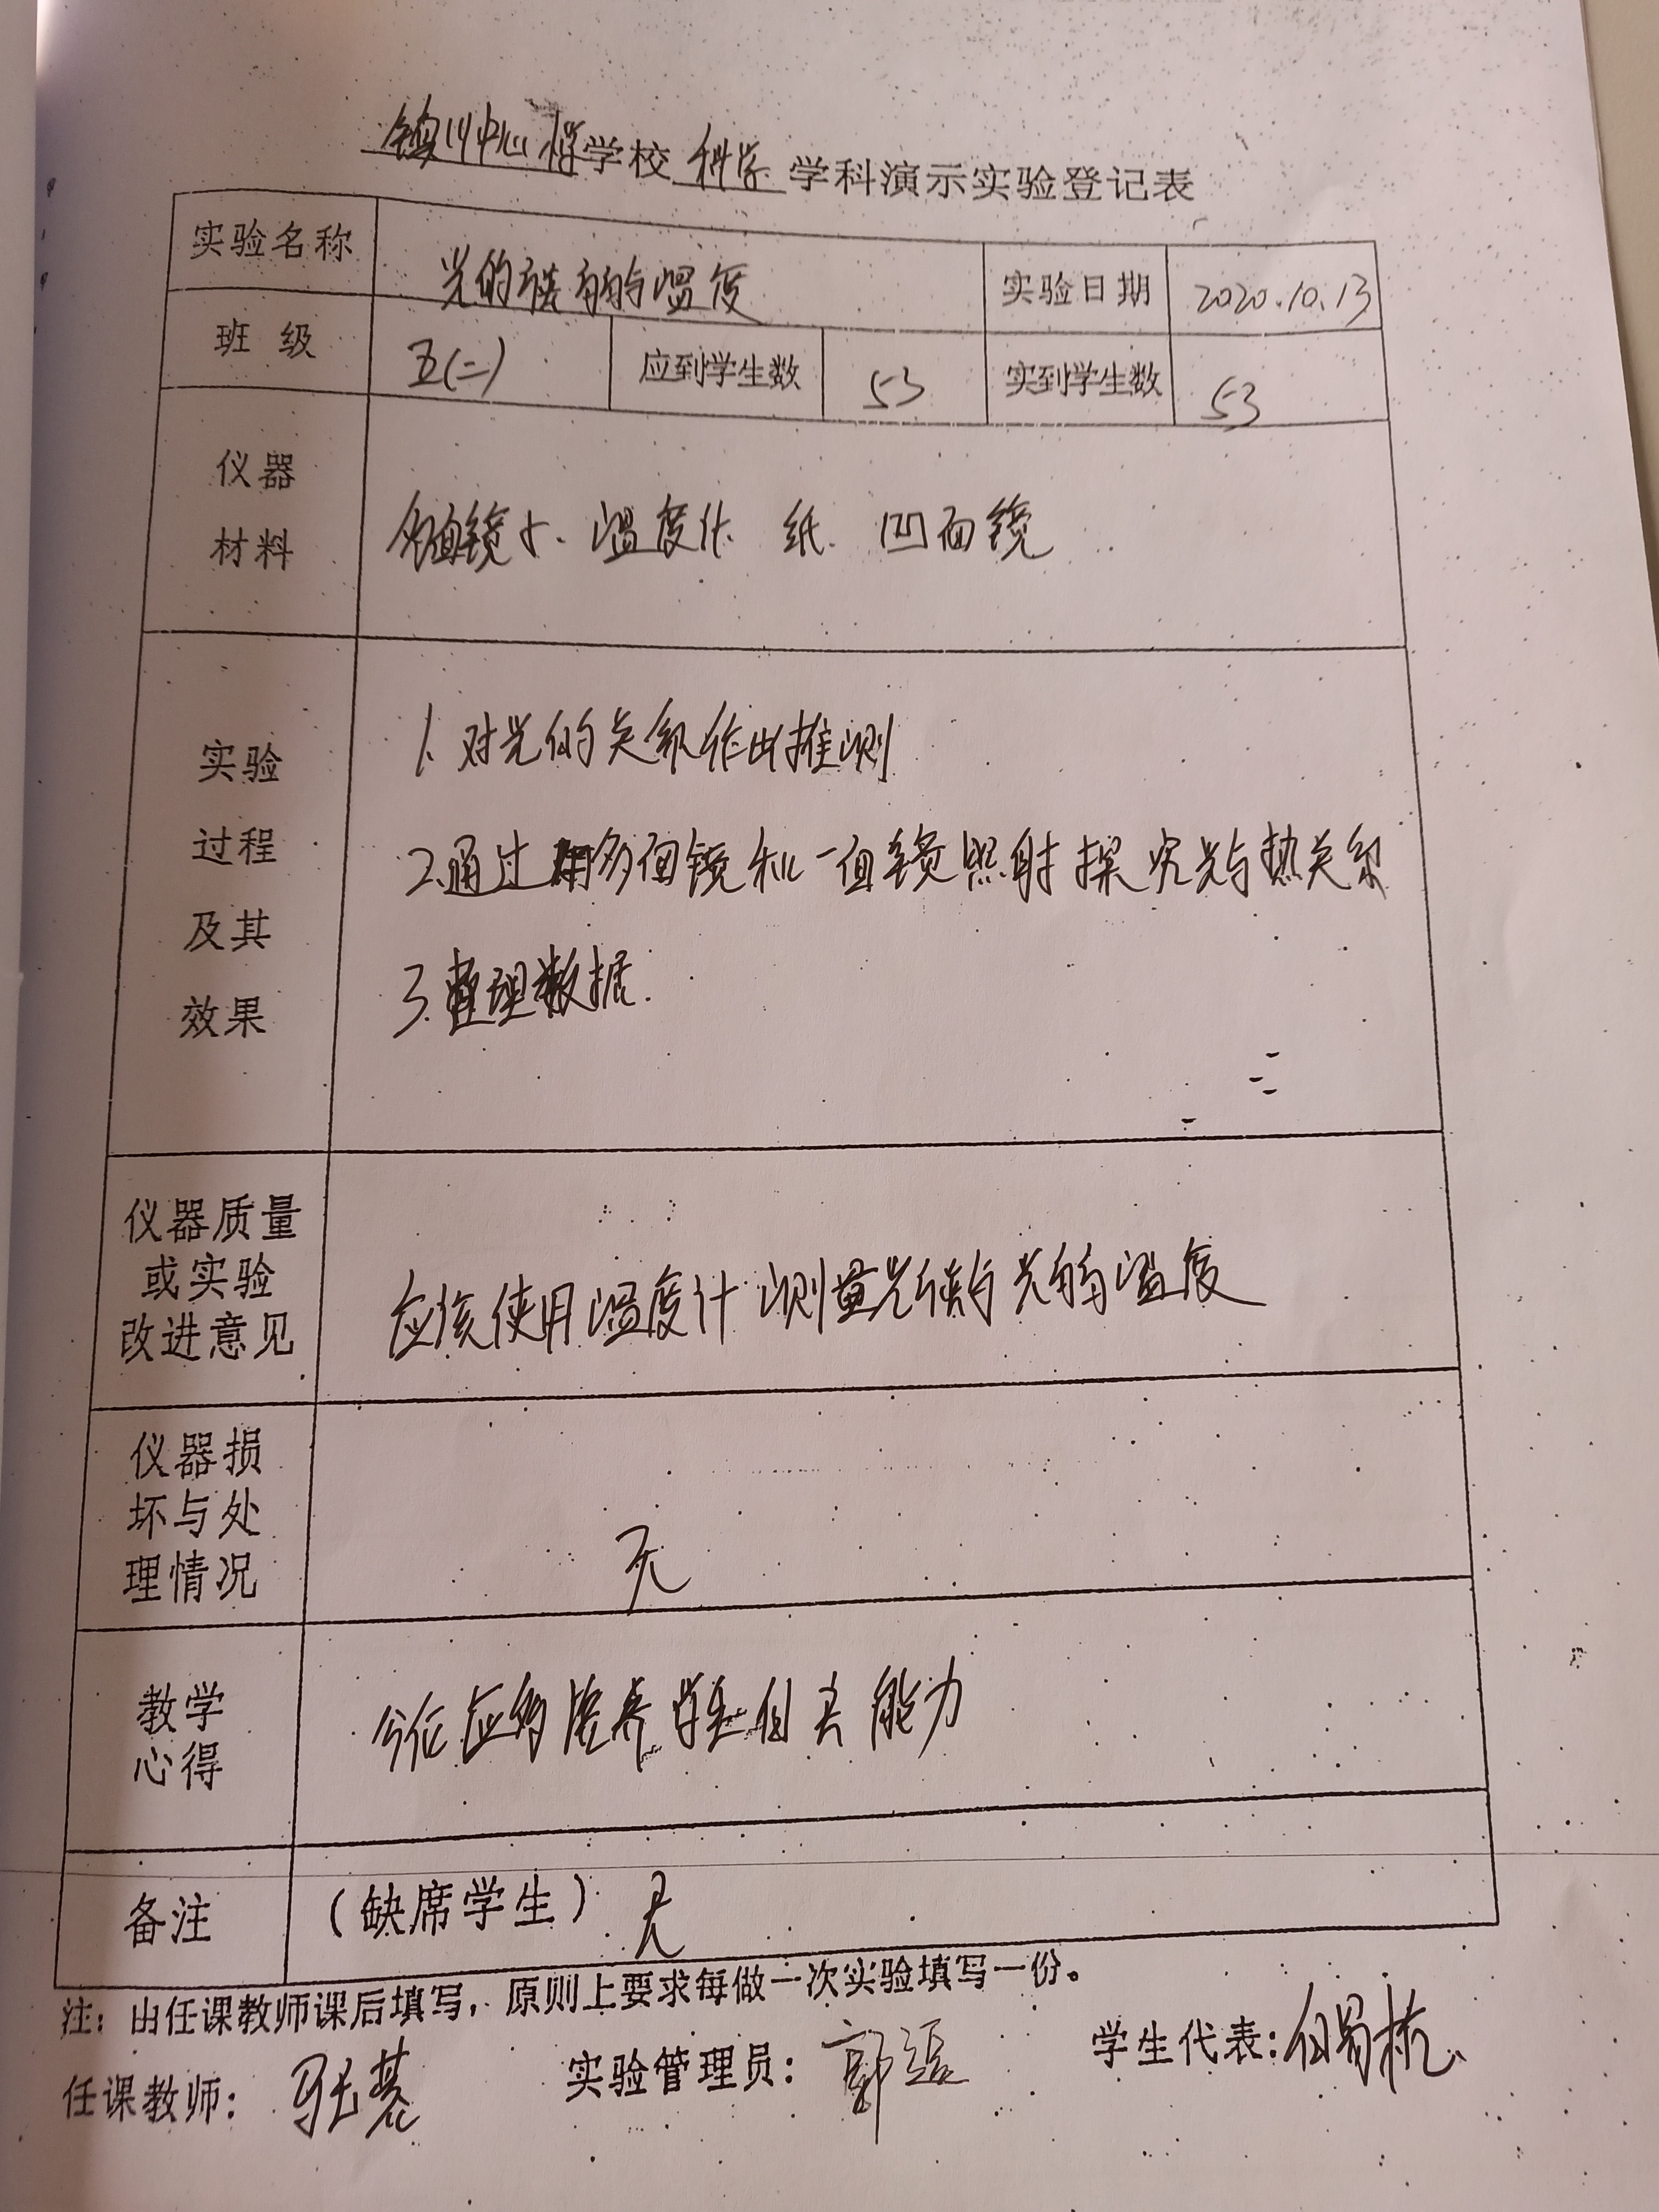 镇川中心校学校 科学 学科演示实验登记表
实验名称 光的 的温度 实验日期 2020.10.13
班 级 五(二) 应到学生数 53 实到学生数 53
仪器
材料
温度计、纸、凹面镜
实验
过程
及其
效果
1. 对光的关系作出推测
2.通过 多面镜和一面镜照射探究光与热关系
3.整理数据.
仪器质量
或实验
改进意见
应该使用温度计测量光 光的温度
仪器损
坏与处
理情况
无
教学
心得
培养学生 能力
备注 (缺席学生) 无
注：由任课教师课后填写，原则上要求每做一次实验填写一份。
任课教师： 实验管理员： 学生代表：